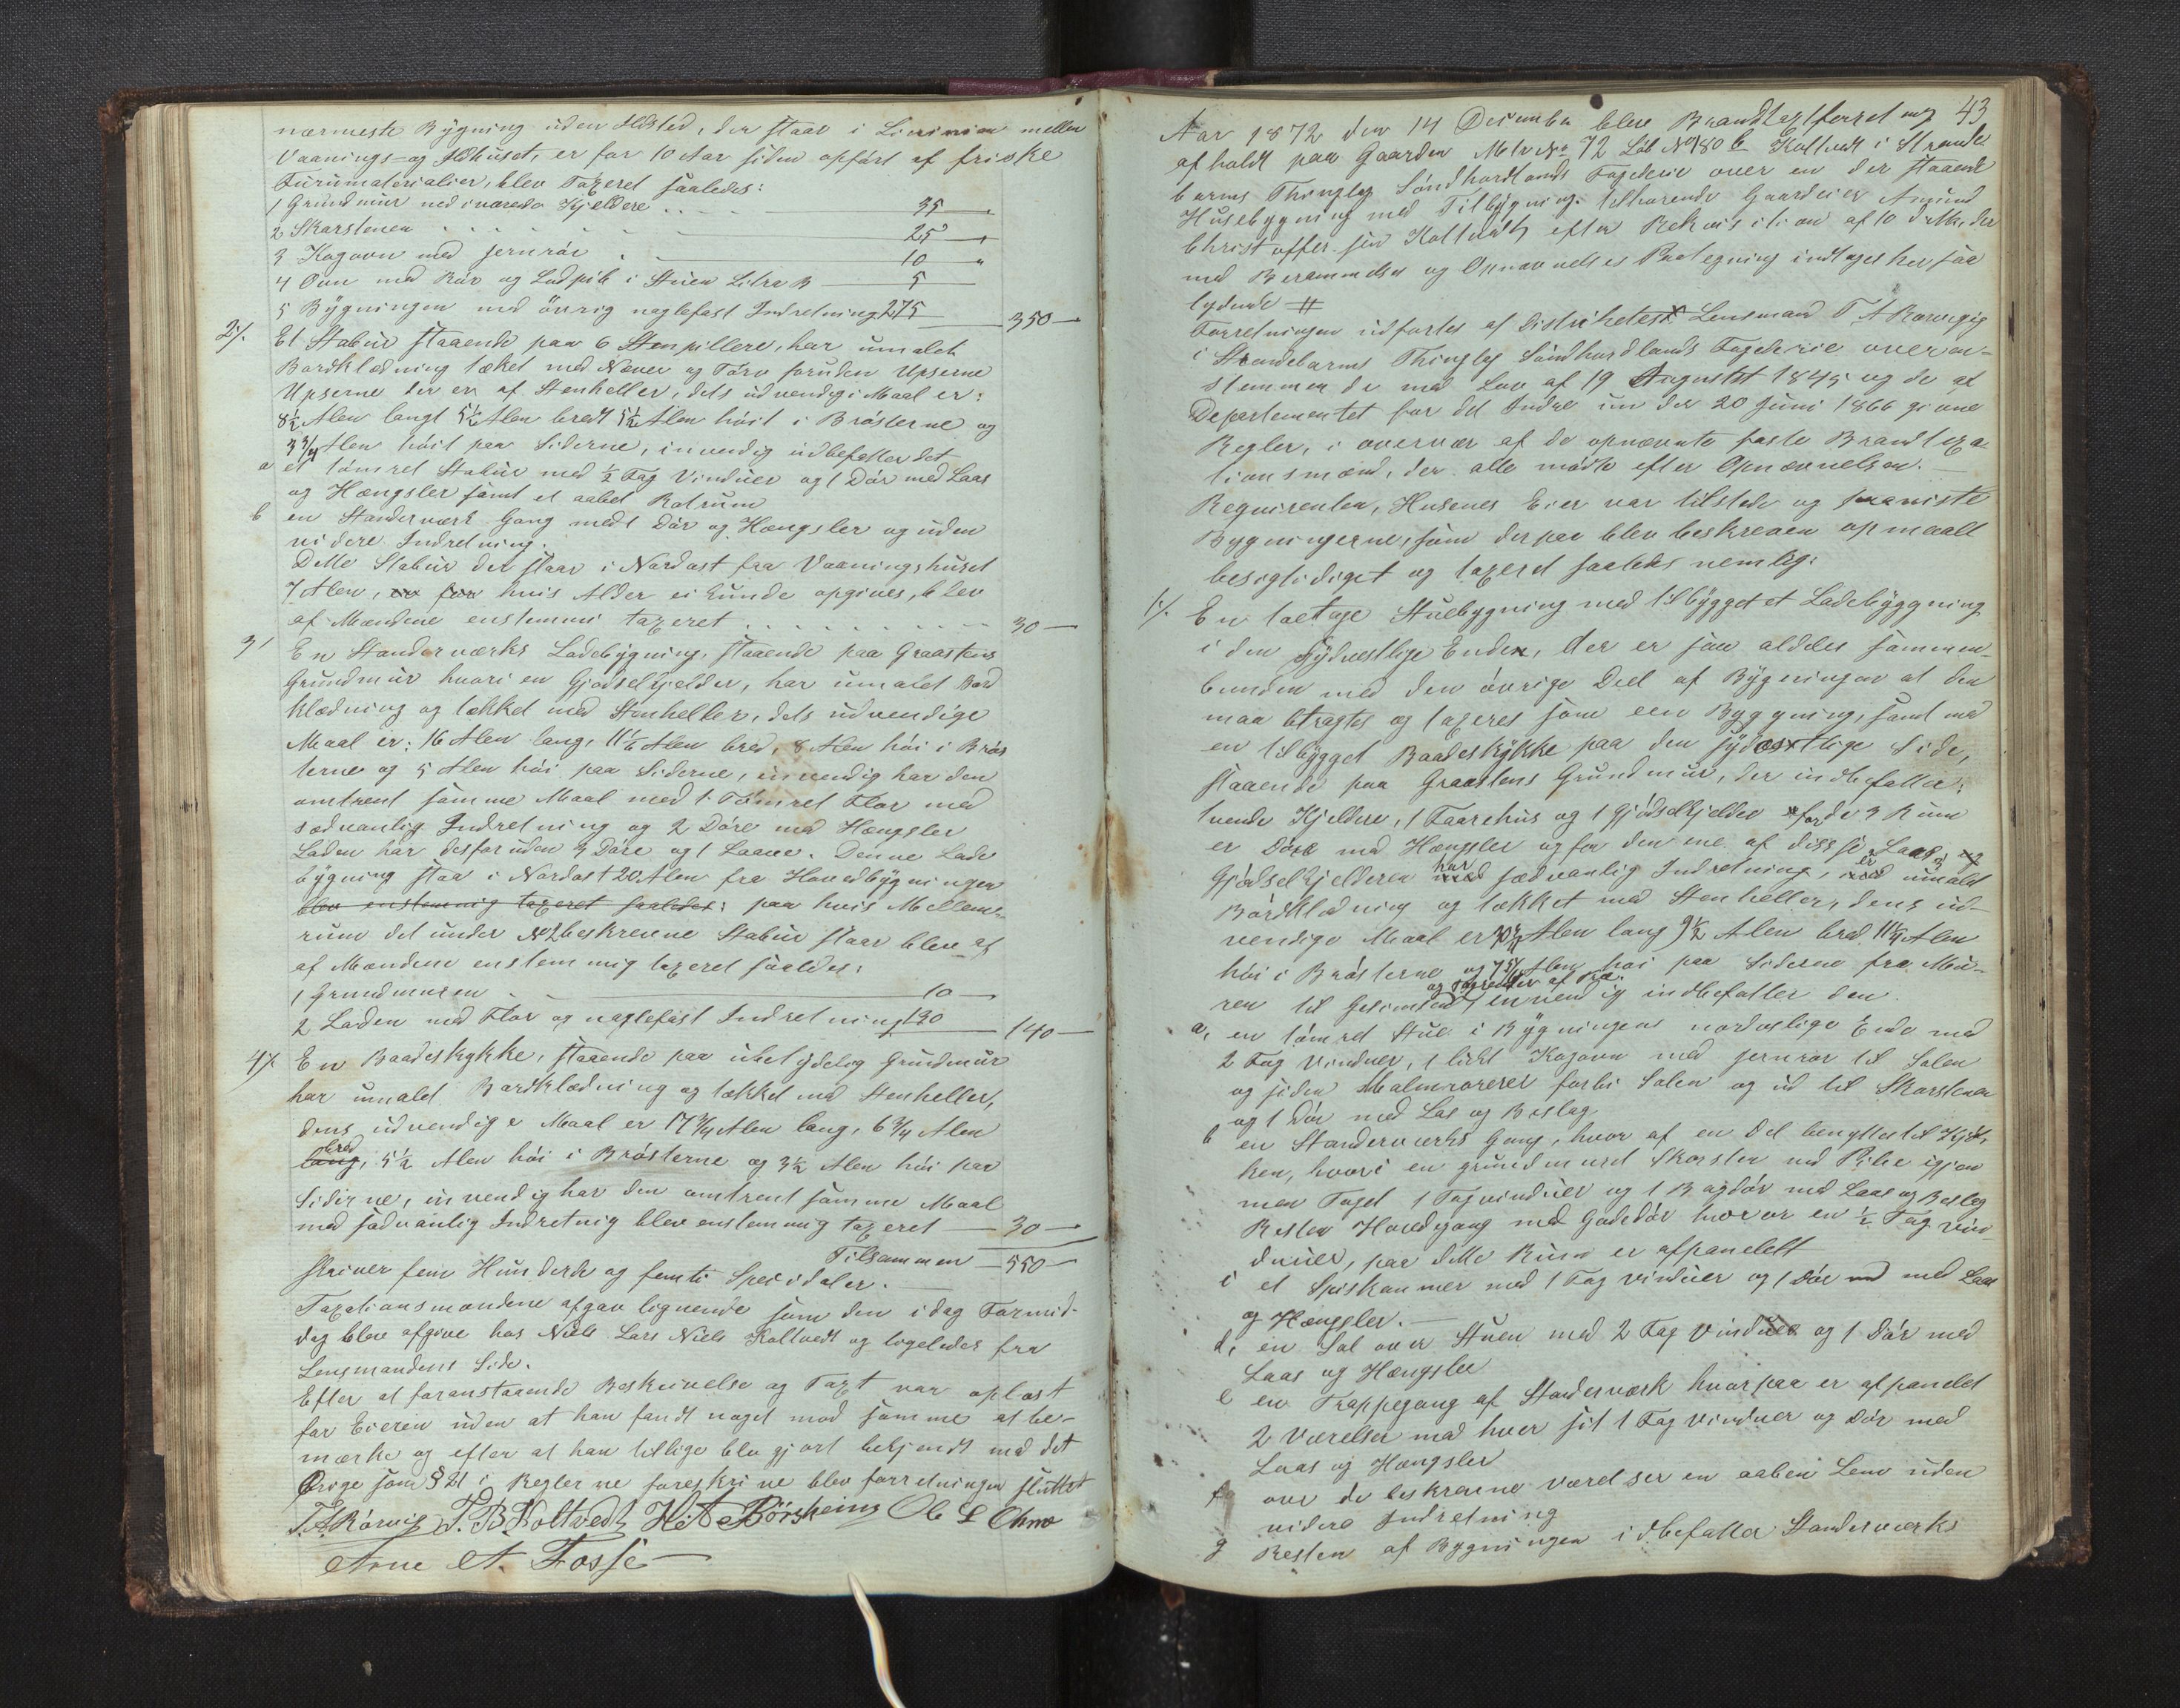 nærmeste Bygning uden Ildsted, der staar i Lineien mellem
Vaanings- og Ildhuset, er for 10 Aar siden opført af friske
Furumaterialier, blev Taxeret saaledes:
1 Grundmur med iværende Kjeldere 35
2 Skorstenen 25 "
3 Kogovn med Jernrør 10 "
4 Ovn med Rør og Ladpib i Stuen Litra B 5
5 Bygningen med øvrig naglefast Indretning 275 350
2/. Et Stabur staaende paa 6 Stenpillere, har umalet
Bordklædning tækket med Næver og Torv foruden Upserne
Upserne der er af Stenheller, dets udvendige Maal er:
8½ Alen langt 5½ Alen bredt 5½ Alen høit i Brøsterne og
3¾ Alen høit paa Siderne, invendig indbefatter det
a et tømret Stabur med ½ Fag Vinduer og 1 Dør med Laas
og Hængsler samt et aabet Rotrum
b en Standerværk Gang med 1 Dør og Hængsler og uden
videre Indretning.
Dette Stabur der staar i Nordost fra Vaaningshuset
7 Alen, er for hvis Alder ei kunde opgives, blev
af Mændene enstemmi taxeret 30
3/ En Standerværks Ladebygning, staaende paa Graastens
Grundmur hvori en Gjødselkjelder, har umalet Bord
klædning og tækket med Stenheller, dets udvendige
Maal er: 16 Alen lang, 11½ Alen bred, 8 Alen høi i Brøs
terne og 5 Alen høi paa Siderne, invendig har den
omtrent samme Maal med 1 Tømret Flor med
sædvanlig Indretning og 2 Døre med Hængsler
Laden har desforuden 3 Døre og 1 Laave. Denne Lade
bygning staa i Nordost 20 Alen fra Hovedbygningen
blev enstemmig taxeret saaledes: paa hvis Mellem-
rum det under No 2 beskrevne Stabur staar blev af
af Mændene enstemmig taxeret saaledes:
1 Grundmuren 10
2 Laden med Flor og naglefast Indretning 130 140
4/. En Baadeskykke, staaende paa ubetydelig Grundmur
har umalet Bordklædning og tækket med Stenheller,
dens udvendige Maal er 17¾ Alen lang, 6¾ Alen
bred
lang, 5½ Alen høi i Brøsterne og 3½ Alen høi paa
Siderne, invendig har den omtrent samme Maal
med sædvanlig Indretnig blev enstemmig taxeret 30
Tilsammen 550
skriver fem Hunderde og femti Speciedaler.
Taxationsmændene afgav lignende som den i dag Formid-
dag blev afgive hos Niels Lars Niels Koltvedt og ligeledes fra
Lensmandens Side.
Efter at foranstaaende Beskrivelse og Taxt var oplæst
for Eieren uden at han fandt noget mod samme at be-
mærke og efter at han tillige blev gjort bekjendt med det
Øvrige som § 21 i Reglerne foreskrive blev forretningen sluttet
T. A. Rørvig T. B. Koltvedt H. A. Børsheim Ole L Ohmo
Arne A. Fosse
43
Aar 1872 den 14 December blev Brandtaxtforretning
afholdt paa Gaarden Matr No 72 Løb No 180 b Koltvedt i Strande
barms Thinglag Søndhordlands Fogderie over en der staaende
Husebygning med Tilbygning tilhørende Gaardeier Amund
Christoffersen Koltvedt efter Rekvisition af 10 d Mr, der
med Berammelse og Opnævnelses Paategning indtages her saa
lydende #
Forretningen udførtes af Distriktets Lensmand T A Rørvigig
i Strandebarms Thinglag Søndhordlands Fogderie overen-
stemmende med Lov af 19 August 1845 og de af
Departementet for det Indre un der 20 Juni 1866 givne
Regler, i overvær af de opnævnte faste Brandtaxa-
tionsmænd, der alle mødte efter Opnævnelsen.
Requirenten, Husenes Eier var tilstede og paaviste
Bygningerne, som derpaa blev beskreven opmaalt
besigtidiget og taxeret saaledes nemlig:
1/. En 1 aetage Stuebygning med tilbygget et Ladebyggning
i den sydvestlige Ende, der er saa aldeles sammen-
bunden med den øvrige Deel af Bygningen at den
maa btragtes og taxeres som een Byggning, samt med
en tilbygget Baadeskykke paa den sydøstlige Side,
staaende paa Graastens Grundmur, der indbefatter:
tvende Kjeldere, 1 Faarehus og 1 Gjødselkjelder for de 3 Rum
er Døre med Hængsler og for den ene af disse Laas,
har er
Gjødselkjelderen med sædvanlig Indretning, med umalet
Bordklædning og tækket med Stenheller, dens ud-
vendige Maal er 30¾ Alen lang 9½ Alen bred 11¼ Alen
høi i Brøsterne og 7 Alen høi paa Siderne fra Mu-
og Tagrender af Træ.
ren til Gesimsen, invendig indbefatter den.
a, en tømret Stue i Bygningens nordostlige Ende med
2 Fag Vinduer, 1 lidet Kogovn med Jernrør til Salen
og siden Malmrører forbi Salen og ud til Skorstenen
og 1 Dør med Las og Beslag
b en Standerværks Gang, hvor af en Del benyttes til Kjøk
ken, hvori en grundmuret Skorsten med Pibe igjen
men Taget 1 Fag vinduer og 1 Bagdør med Laas og Beslag
Resten Hovedgang med Gadedør hvorover en ½ Fag vin-
duuer, paa dette Rum er afpanelett
c et Spiskammer med 1 Fag vinduer og 1 Dør med med Laas
og Hængsler.
d, en Sal over Stuen med 2 Fag Vinduer og 1 Dør med
Laas og Hængsler
e en Trappegang af Standerværk hvorpaa er afpandelet
2 Værelser med hver sit 1 Fag Vinduer og Dør med
Laas og Hængsler
f over de beskrevne værelser en aaben Lem uden
videre Indretning
g Resten af Bygningen idbefatter Standerværks